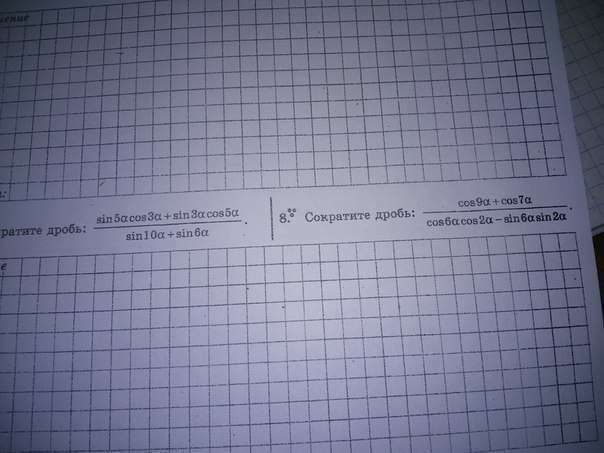 sin5αcos3α+sin3αcos5α / sin10α+sin6α .
8. Сократите дробь: cos9α+cos7α / cos6αcos2α−sin6αsin2α .